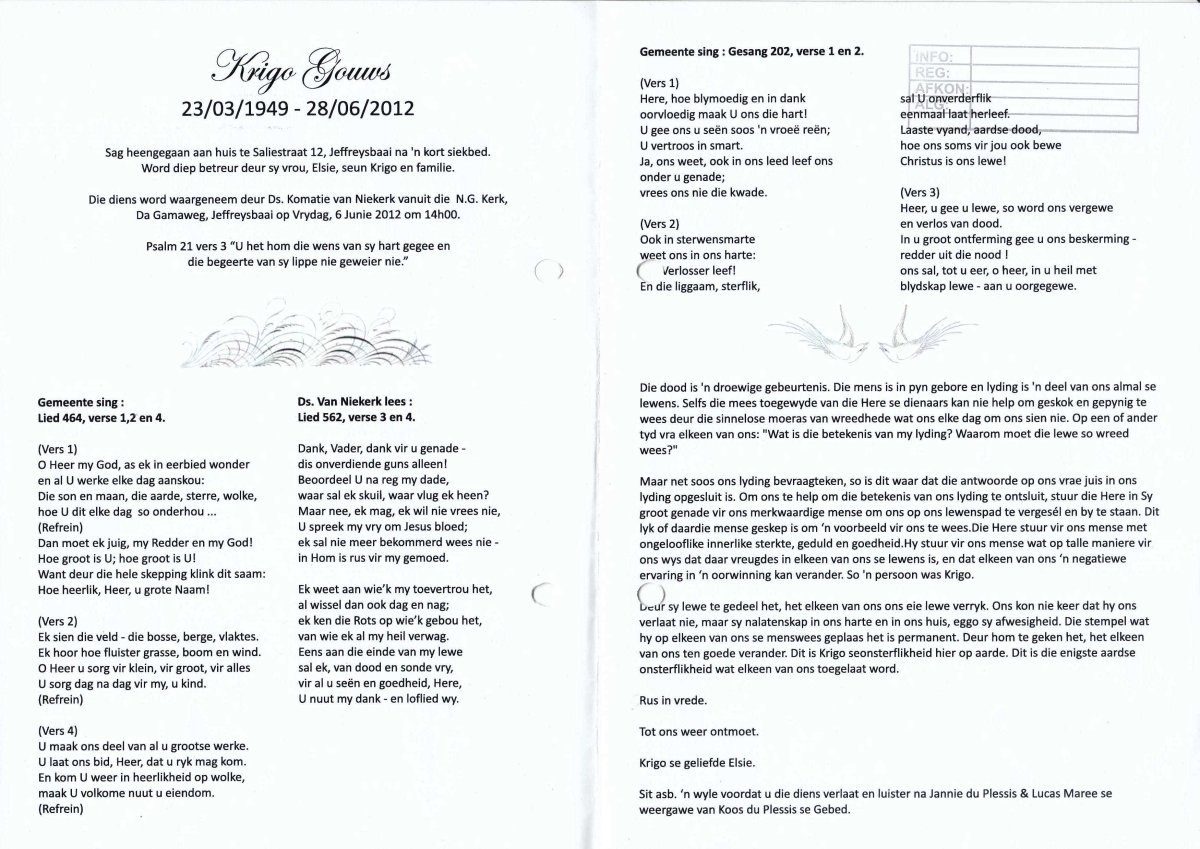 Krigo Gouws
23/03/1949 - 28/06/2012
Sag heengegaan aan huis te Saliestraat 12, Jeffreysbaai na 'n kort siekbed.
Word diep betreur deur sy vrou, Elsie, seun Krigo en familie.
Die diens word waargeneem deur Ds. Komatie van Niekerk vanuit die N.G. Kerk,
Da Gamaweg, Jeffreysbaai op Vrydag, 6 Junie 2012 om 14h00.
Psalm 21 vers 3 “U het hom die wens van sy hart gegee en
die begeerte van sy lippe nie geweier nie.”
Gemeente sing :
Lied 464, verse 1,2 en 4.
(Vers 1)
O Heer my God, as ek in eerbied wonder
en al U werke elke dag aanskou:
Die son en maan, die aarde, sterre, wolke,
hoe U dit elke dag so onderhou ...
(Refrein)
Dan moet ek juig, my Redder en my God!
Hoe groot is U; hoe groot is U!
Want deur die hele skepping klink dit saam:
Hoe heerlik, Heer, u grote Naam!
(Vers 2)
Ek sien die veld - die bosse, berge, vlaktes.
Ek hoor hoe fluister grasse, boom en wind.
O Heer u sorg vir klein, vir groot, vir alles
U sorg dag na dag vir my, u kind.
(Refrein)
(Vers 4)
U maak ons deel van al u grootse werke.
U laat ons bid, Heer, dat u ryk mag kom.
En kom U weer in heerlikheid op wolke,
maak U volkome nuut u eiendom.
(Refrein)
Ds. Van Niekerk lees :
Lied 562, verse 3 en 4.
Dank, Vader, dank vir u genade -
dis onverdiende guns alleen!
Beoordeel U na reg my dade,
waar sal ek skuil, waar vlug ek heen?
Maar nee, ek mag, ek wil nie vrees nie,
U spreek my vry om Jesus bloed;
ek sal nie meer bekommerd wees nie -
in Hom is rus vir my gemoed.
Ek weet aan wie’k my toevertrou het,
al wissel dan ook dag en nag;
ek ken die Rots op wie’k gebou het,
van wie ek al my heil verwag.
Eens aan die einde van my lewe
sal ek, van dood en sonde vry,
vir al u seën en goedheid, Here,
U nuut my dank - en loflied wy.
Gemeente sing : Gesang 202, verse 1 en 2.
INFO:
REG:
AFKON:
ALG:
(Vers 1)
Here, hoe blymoedig en in dank
oorvloedig maak U ons die hart!
U gee ons u seën soos 'n vroeë reën;
U vertroos in smart.
Ja, ons weet, ook in ons leed leef ons
onder u genade;
vrees ons nie die kwade.
(Vers 2)
Ook in sterwensmarte
weet ons in ons harte:
Verlosser leef!
En die liggaam, sterflik,
sal U onverderflik
eenmaal laat herleef.
Laaste vyand, aardse dood,
hoe ons soms vir jou ook bewe
Christus is ons lewe!
(Vers 3)
Heer, u gee u lewe, so word ons vergewe
en verlos van dood.
In u groot ontferming gee u ons beskerming -
redder uit die nood !
ons sal, tot u eer, o heer, in u heil met
blydskap lewe - aan u oorgegewe.
Die dood is 'n droewige gebeurtenis. Die mens is in pyn gebore en lyding is 'n deel van ons almal se
lewens. Selfs die mees toegewyde van die Here se dienaars kan nie help om geskok en gepynig te
wees deur die sinnelose moeras van wreedhede wat ons elke dag om ons sien nie. Op een of ander
tyd vra elkeen van ons: "Wat is die betekenis van my lyding? Waarom moet die lewe so wreed
wees?"
Maar net soos ons lyding bevraagteken, so is dit waar dat die antwoorde op ons vrae juis in ons
lyding opgesluit is. Om ons te help om die betekenis van ons lyding te ontsluit, stuur die Here in Sy
groot genade vir ons merkwaardige mense om ons op ons lewenspad te vergesél en by te staan. Dit
lyk of daardie mense geskep is om ‘n voorbeeld vir ons te wees.Die Here stuur vir ons mense met
ongelooflike innerlike sterkte, geduld en goedheid.Hy stuur vir ons mense wat op talle maniere vir
ons wys dat daar vreugdes in elkeen van ons se lewens is, en dat elkeen van ons ‘n negatiewe
ervaring in ‘n oorwinning kan verander. So 'n persoon was Krigo.
Deur sy lewe te gedeel het, het elkeen van ons ons eie lewe verryk. Ons kon nie keer dat hy ons
verlaat nie, maar sy nalatenskap in ons harte en in ons huis, eggo sy afwesigheid. Die stempel wat
hy op elkeen van ons se menswees geplaas het is permanent. Deur hom te geken het, het elkeen
van ons ten goede verander. Dit is Krigo seonsterflikheid hier op aarde. Dit is die enigste aardse
onsterflikheid wat elkeen van ons toegelaat word.
Rus in vrede.
Tot ons weer ontmoet.
Krigo se geliefde Elsie.
Sit asb. ‘n wyle voordat u die diens verlaat en luister na Jannie du Plessis & Lucas Maree se
weergawe van Koos du Plessis se Gebed.